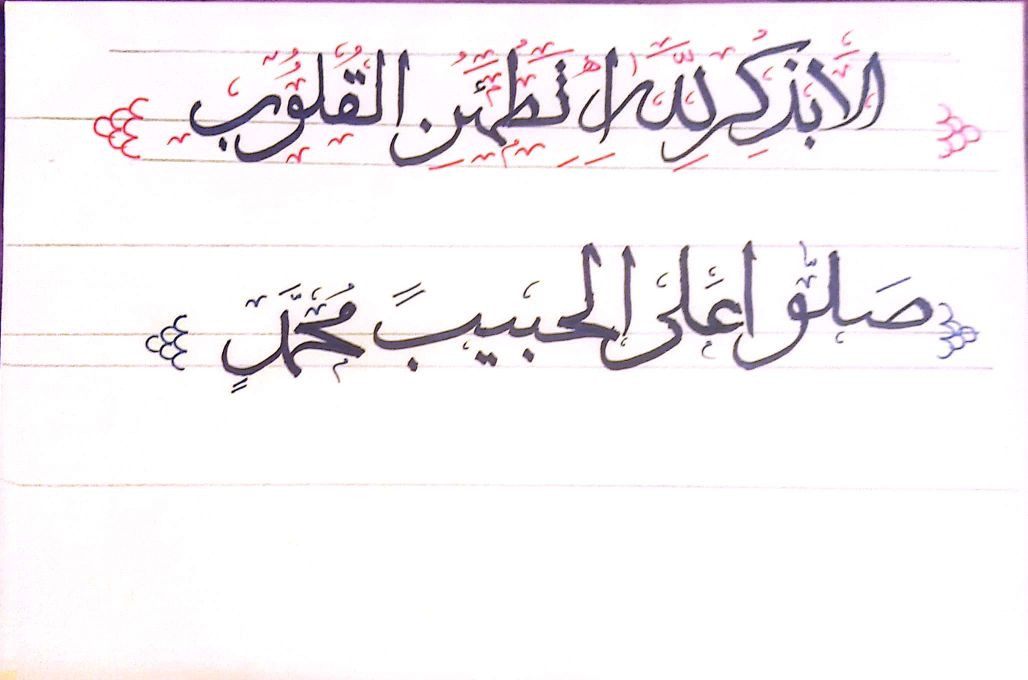 الا بذكر لله ا تطمئن القلوب
صلوا على الحبيب محمد